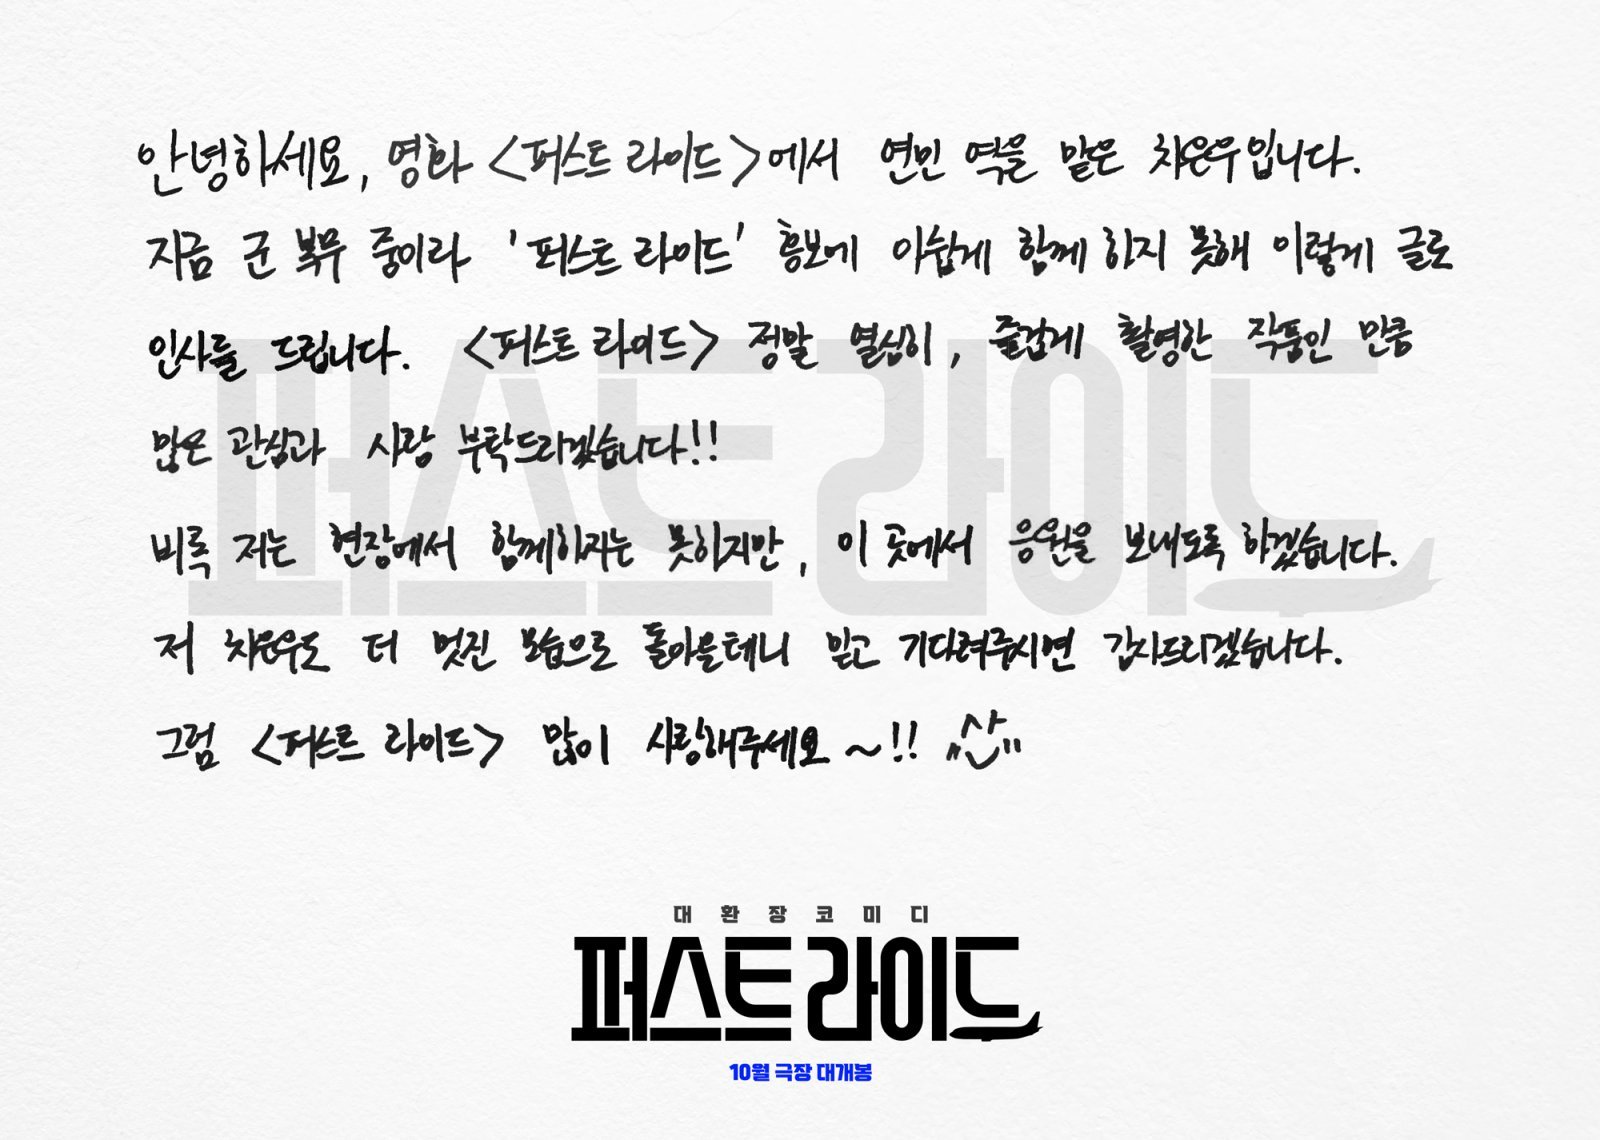 안녕하세요, 영화 <퍼스트 라이드>에서 연민 역을 맡은 차은우입니다.
지금 군 복무 중이라 '퍼스트 라이드' 홍보에 아쉽게 함께 하지 못해 이렇게 글로
인사를 드립니다. <퍼스트 라이드> 정말 열심히, 즐겁게 촬영한 작품인 만큼
많은 관심과 사랑 부탁드리겠습니다!!
비록 저는 현장에서 함께하지는 못하지만, 이 곳에서 응원을 보내도록 하겠습니다.
저 차은우도 더 멋진 모습으로 돌아올테니 믿고 기다려주시면 감사드리겠습니다.
그럼 <퍼스트 라이드> 많이 사랑해주세요~!! ^^
대환장코미디
퍼스트 라이드
10월 극장 대개봉
퍼스트 라이드